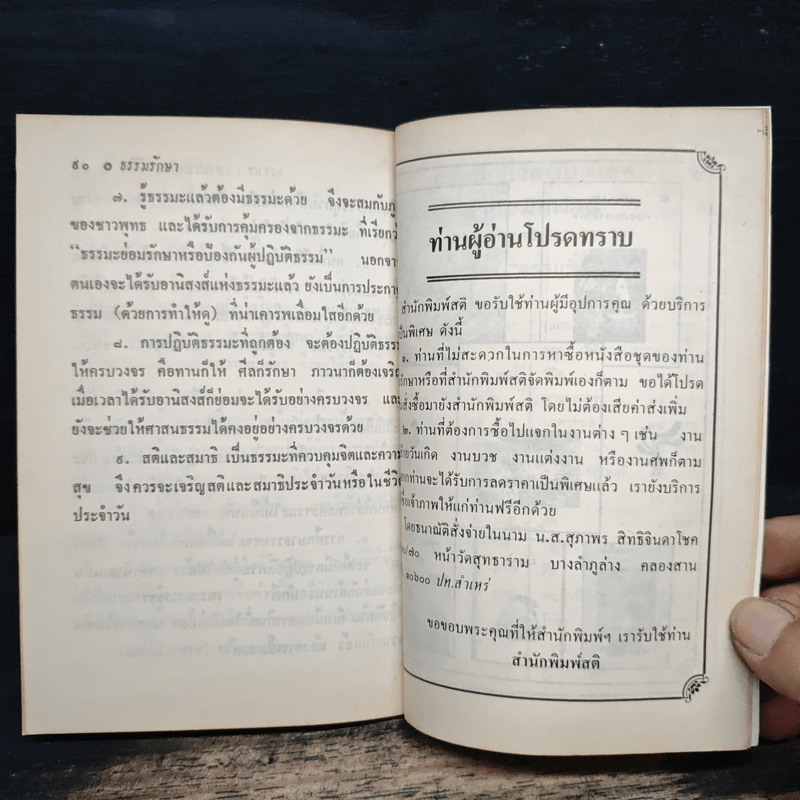 ๙๐ ๐ ธรรมรักษา
๗. รู้ธรรมะแล้วต้องมีธรรมะด้วย จึงจะสมกับภู
ของชาวพุทธ และได้รับการคุ้มครองจากธรรมะ ที่เรียกว่
“ธรรมะย่อมรักษาหรือป้องกันผู้ปฏิบัติธรรม” นอกจา
ตนเองจะได้รับอานิสงส์แห่งธรรมะแล้ว ยังเป็นการประกา
ธรรม (ด้วยการทำให้ดู) ที่น่าเคารพเลื่อมใสอีกด้วย
๘. การปฏิบัติธรรมะที่ถูกต้อง จะต้องปฏิบัติธรรม
ให้ครบวงจร คือทานก็ให้ ศีลก็รักษา ภาวนาก็ต้องเจริ
เมื่อเวลาได้รับอานิสงส์ก็ย่อมจะได้รับอย่างครบวงจร แล
ยังจะช่วยให้ศาสนธรรมได้คงอยู่อย่างครบวงจรด้วย
๙. สติและสมาธิ เป็นธรรมะที่ควบคุมจิตและความ
สุข จึงควรจะเจริญสติและสมาธิประจำวันหรือในชีวิ
ประจำวัน
ท่านผู้อ่านโปรดทราบ
สำนักพิมพ์สติ ขอรับใช้ท่านผู้มีอุปการคุณ ด้วยบริการ
เป็นพิเศษ ดังนี้
๑. ท่านที่ไม่สะดวกในการหาซื้อหนังสือชุดของท่าน
รักษาหรือที่สำนักพิมพ์สติจัดพิมพ์เองก็ตาม ขอได้โปรด
สั่งซื้อมายังสำนักพิมพ์สติ โดยไม่ต้องเสียค่าส่งเพิ่ม
๒. ท่านที่ต้องการซื้อไปแจกในงานต่าง ๆ เช่น งาน
วันเกิด งานบวช งานแต่งงาน หรืองานศพก็ตาม
ท่านจะได้รับการลดราคาเป็นพิเศษแล้ว เรายังบริการ
ชื่อเจ้าภาพให้แก่ท่านฟรีอีกด้วย
โดยธนาณัติสั่งจ่ายในนาม น.ส.สุภาพร สิทธิจินดาโชค
/๗๐ หน้าวัดสุทธาราม บางลำภูล่าง คลองสาน
๑๐๖๐๐ ปท.สำเหร่
ขอขอบพระคุณที่ให้สำนักพิมพ์ฯ เรารับใช้ท่าน
สำนักพิมพ์สติ